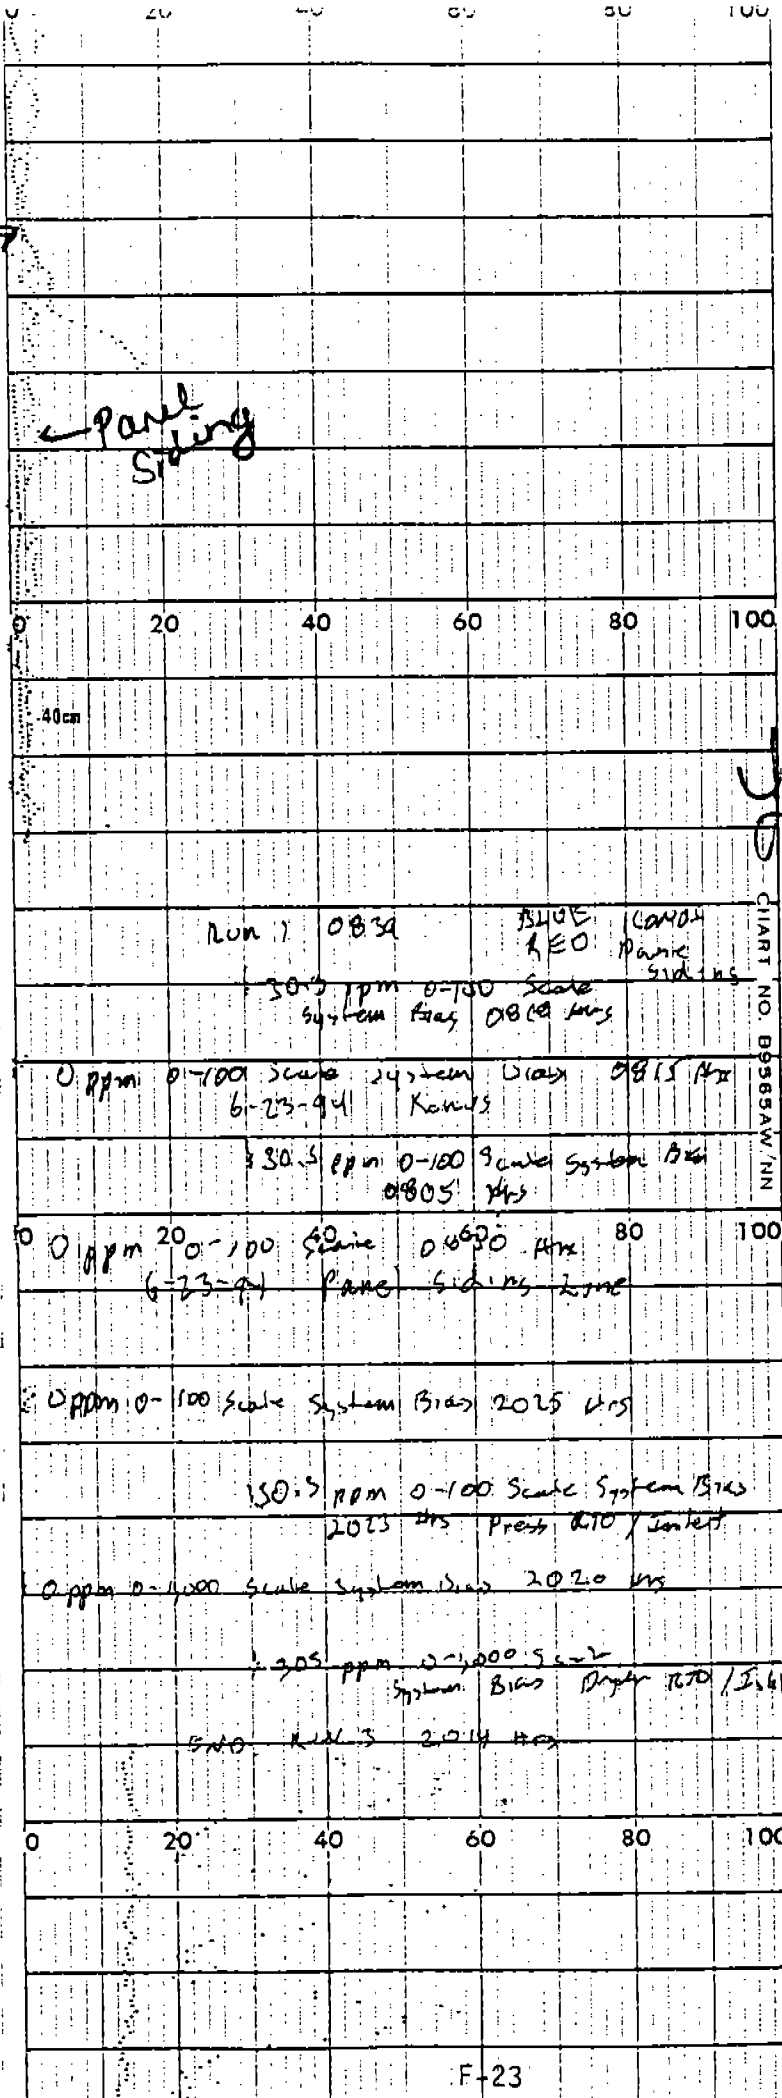 0 20 60 80 100
← Panel
Siding
0 20 40 60 80 100
40cm
CHART NO B9565AW/NN
Run 1 0839
BLUE
RED Panel
Siding
30.5 ppm 0-100 Scale
System Bias 0818 Hrs
0 ppm 0-100 Scale System Bias 0815 Hrs
6-23-94
30.5 ppm 0-100 Scale System Bias
0805 Hrs
0 20 40 60 80 100
0 ppm 0-100 Scale Hrs
6-23-94 Panel Siding Line
0 ppm 0-100 Scale System Bias 2025 Hrs
30.5 ppm 0-100 Scale System Bias
2023 Hrs Press RTO / Inlet
0 ppm 0-1,000 Scale System Bias 2020 Hrs
305 ppm 0-1,000 Scale
System Bias Dryer RTO /
END RUN 3 2014 Hrs
0 20 40 60 80 100
F-23